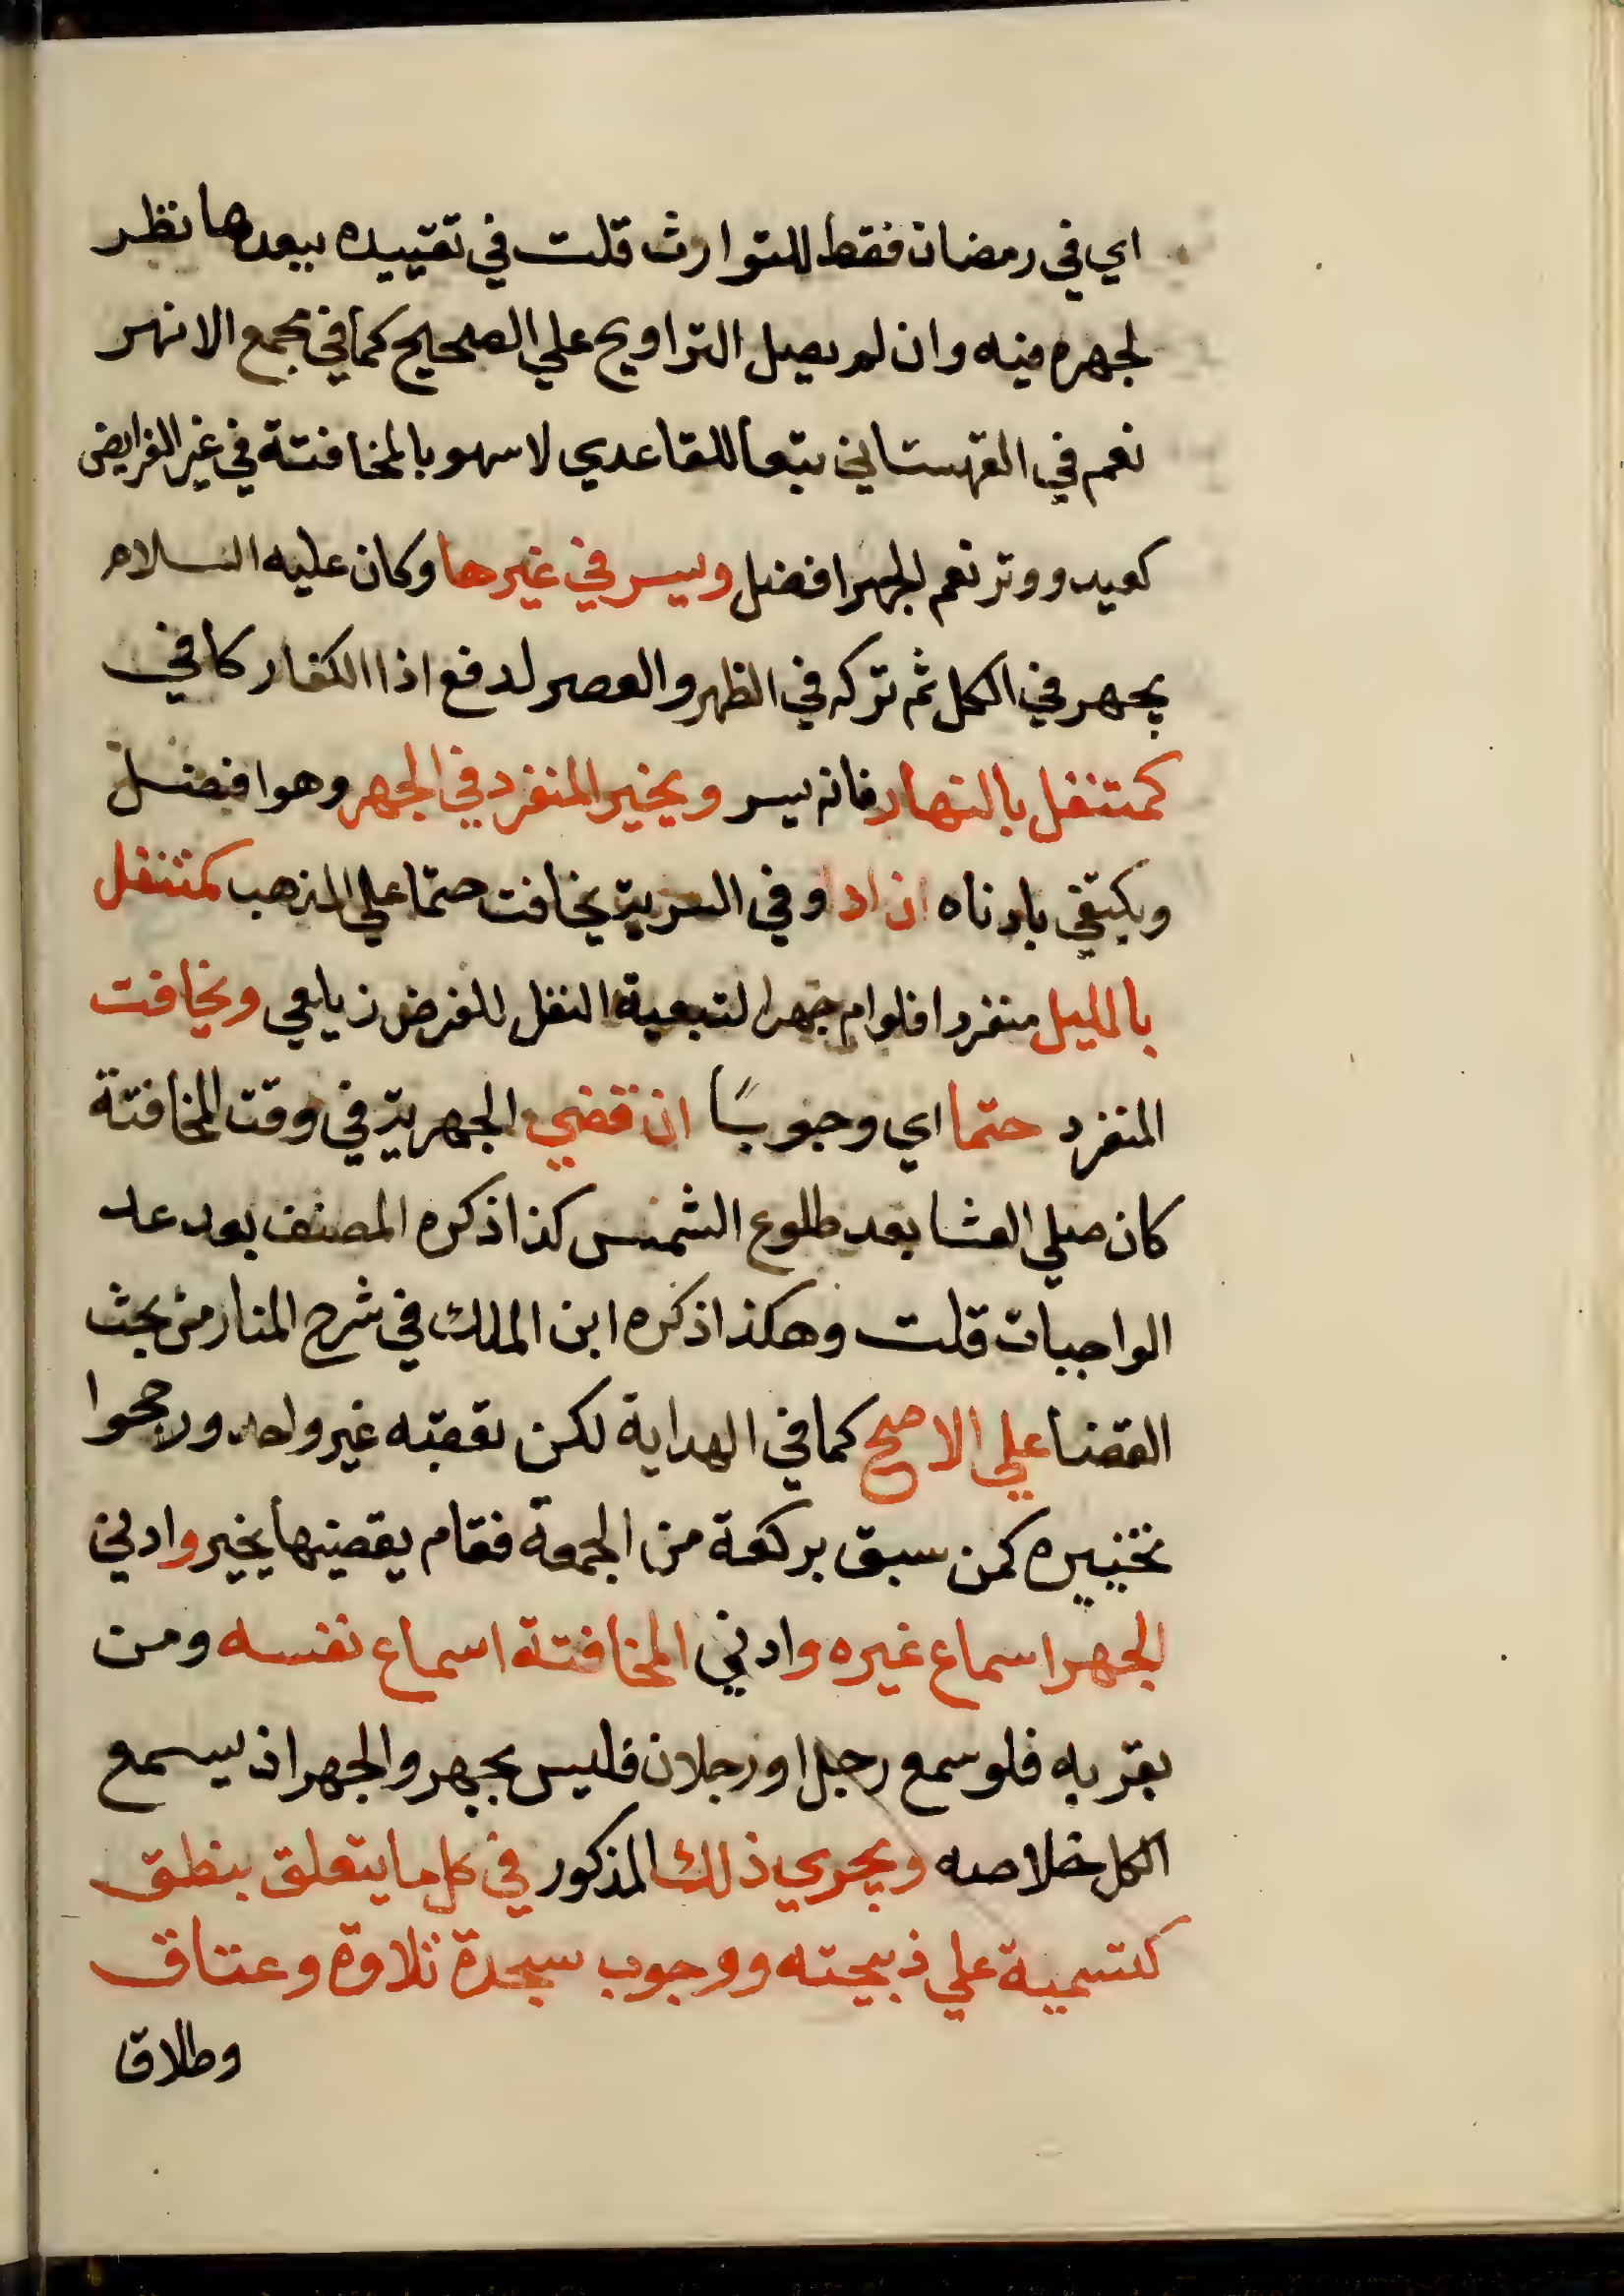 اي في رمضان فقط للتوارث قلت في تقييده ببعدها نظر
لجهره فيه وان لم يصل التراويح علي الصحيح كما في مجمع الانهر
نعم في القهستاني تبعا للقاعدي لا سهو بالمخافتة في غير الفرايض
كعيد ووتر نعم الجهر افضل ويسر في غيرها وكان عليه السلام
يجهر في الكل ثم تركه في الظهر والعصر لدفع اذا الكفار كافي
كمتنفل بالنهار فانه يسر ويخير المنفرد في الجهر وهو افضل
ويكتفي بادناه ان ادا وفي السرية يخافت حتما علي المذهب كمتنفل
بالليل منفردا فلو ام جهر لتبعية النفل للفرض زيلعي ويخافت
المنفرد حتما اي وجوبًا ان قضي الجهرية في وقت المخافتة
كان صلي العشا بعد طلوع الشمس كذا ذكره المصنف بعد عد
الواجبات قلت وهكذا ذكره ابن الملك في شرح المنار من بحث
القضا علي الاصح كما في الهداية لكن تعقبه غير واحد ورجحوا
تخييره كمن سبق بركعة من الجمعة فقام يقضيها يخير وادني
الجهر اسماع غيره وادني المخافتة اسماع نفسه ومن
بقربه فلو سمع رجل او رجلان فليس بجهر والجهر اذ يسمع
الكل خلاصه ويجري ذلك المذكور في كل ما يتعلق بنطق
كتسمية علي ذبيحته ووجوب سجدة تلاوة وعتاق
وطلاق